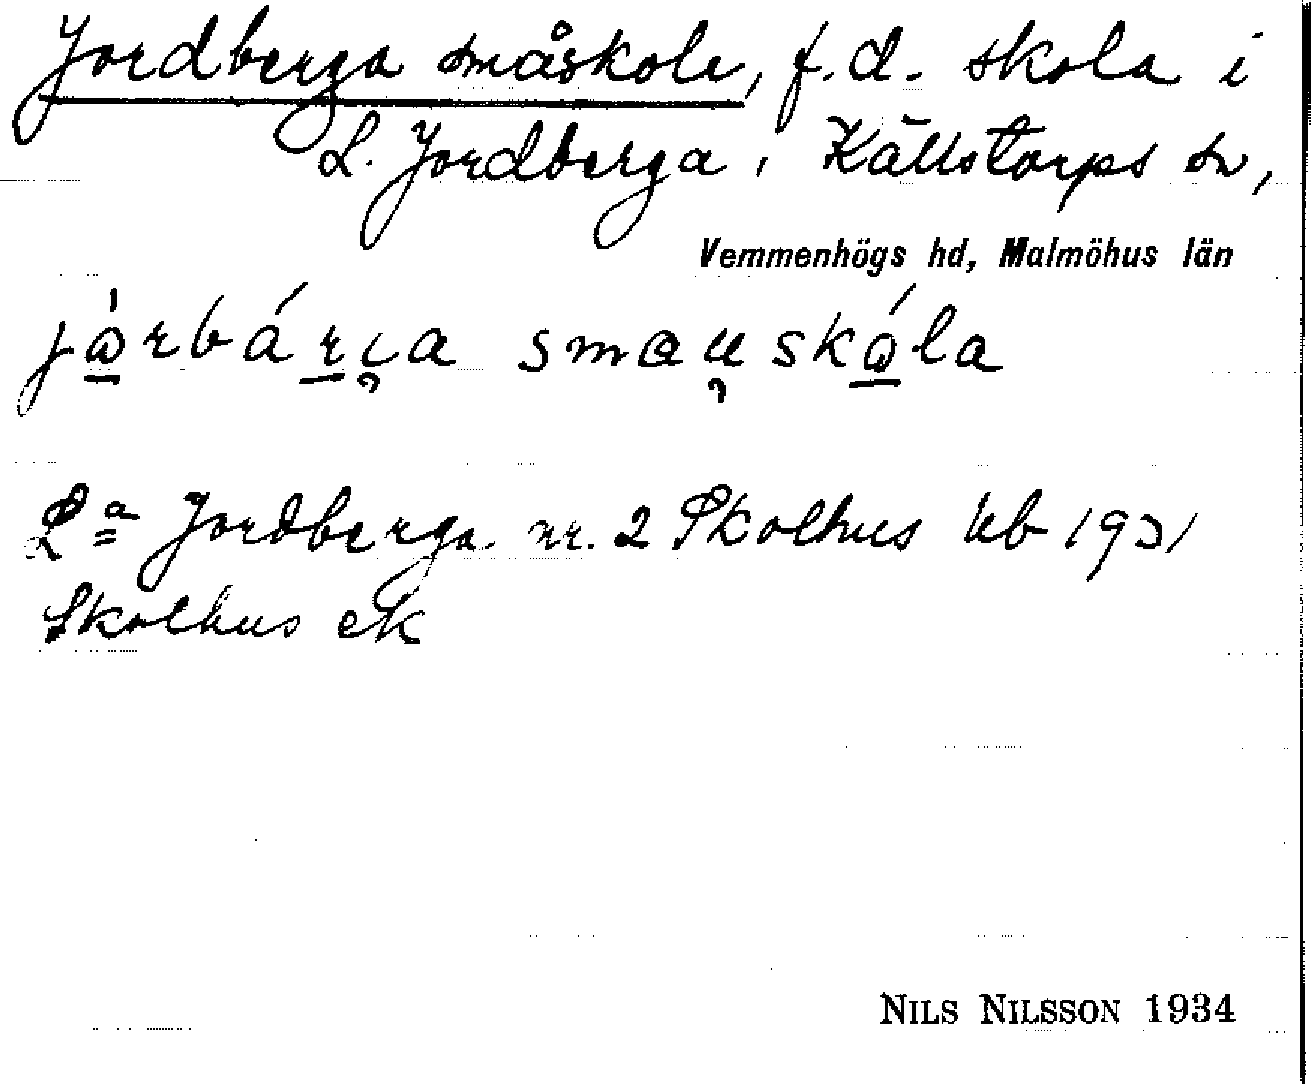 Jordberga småskola, f.d. skola i
L. Jordberga, Källstorps sn,
Vemmenhögs hd, Malmöhus län
jårbárı̯a smau̯skóla
L:a Jordberga nr. 2 Skolhus Jrb 1931
Skolhus ek
NILS NILSSON 1934